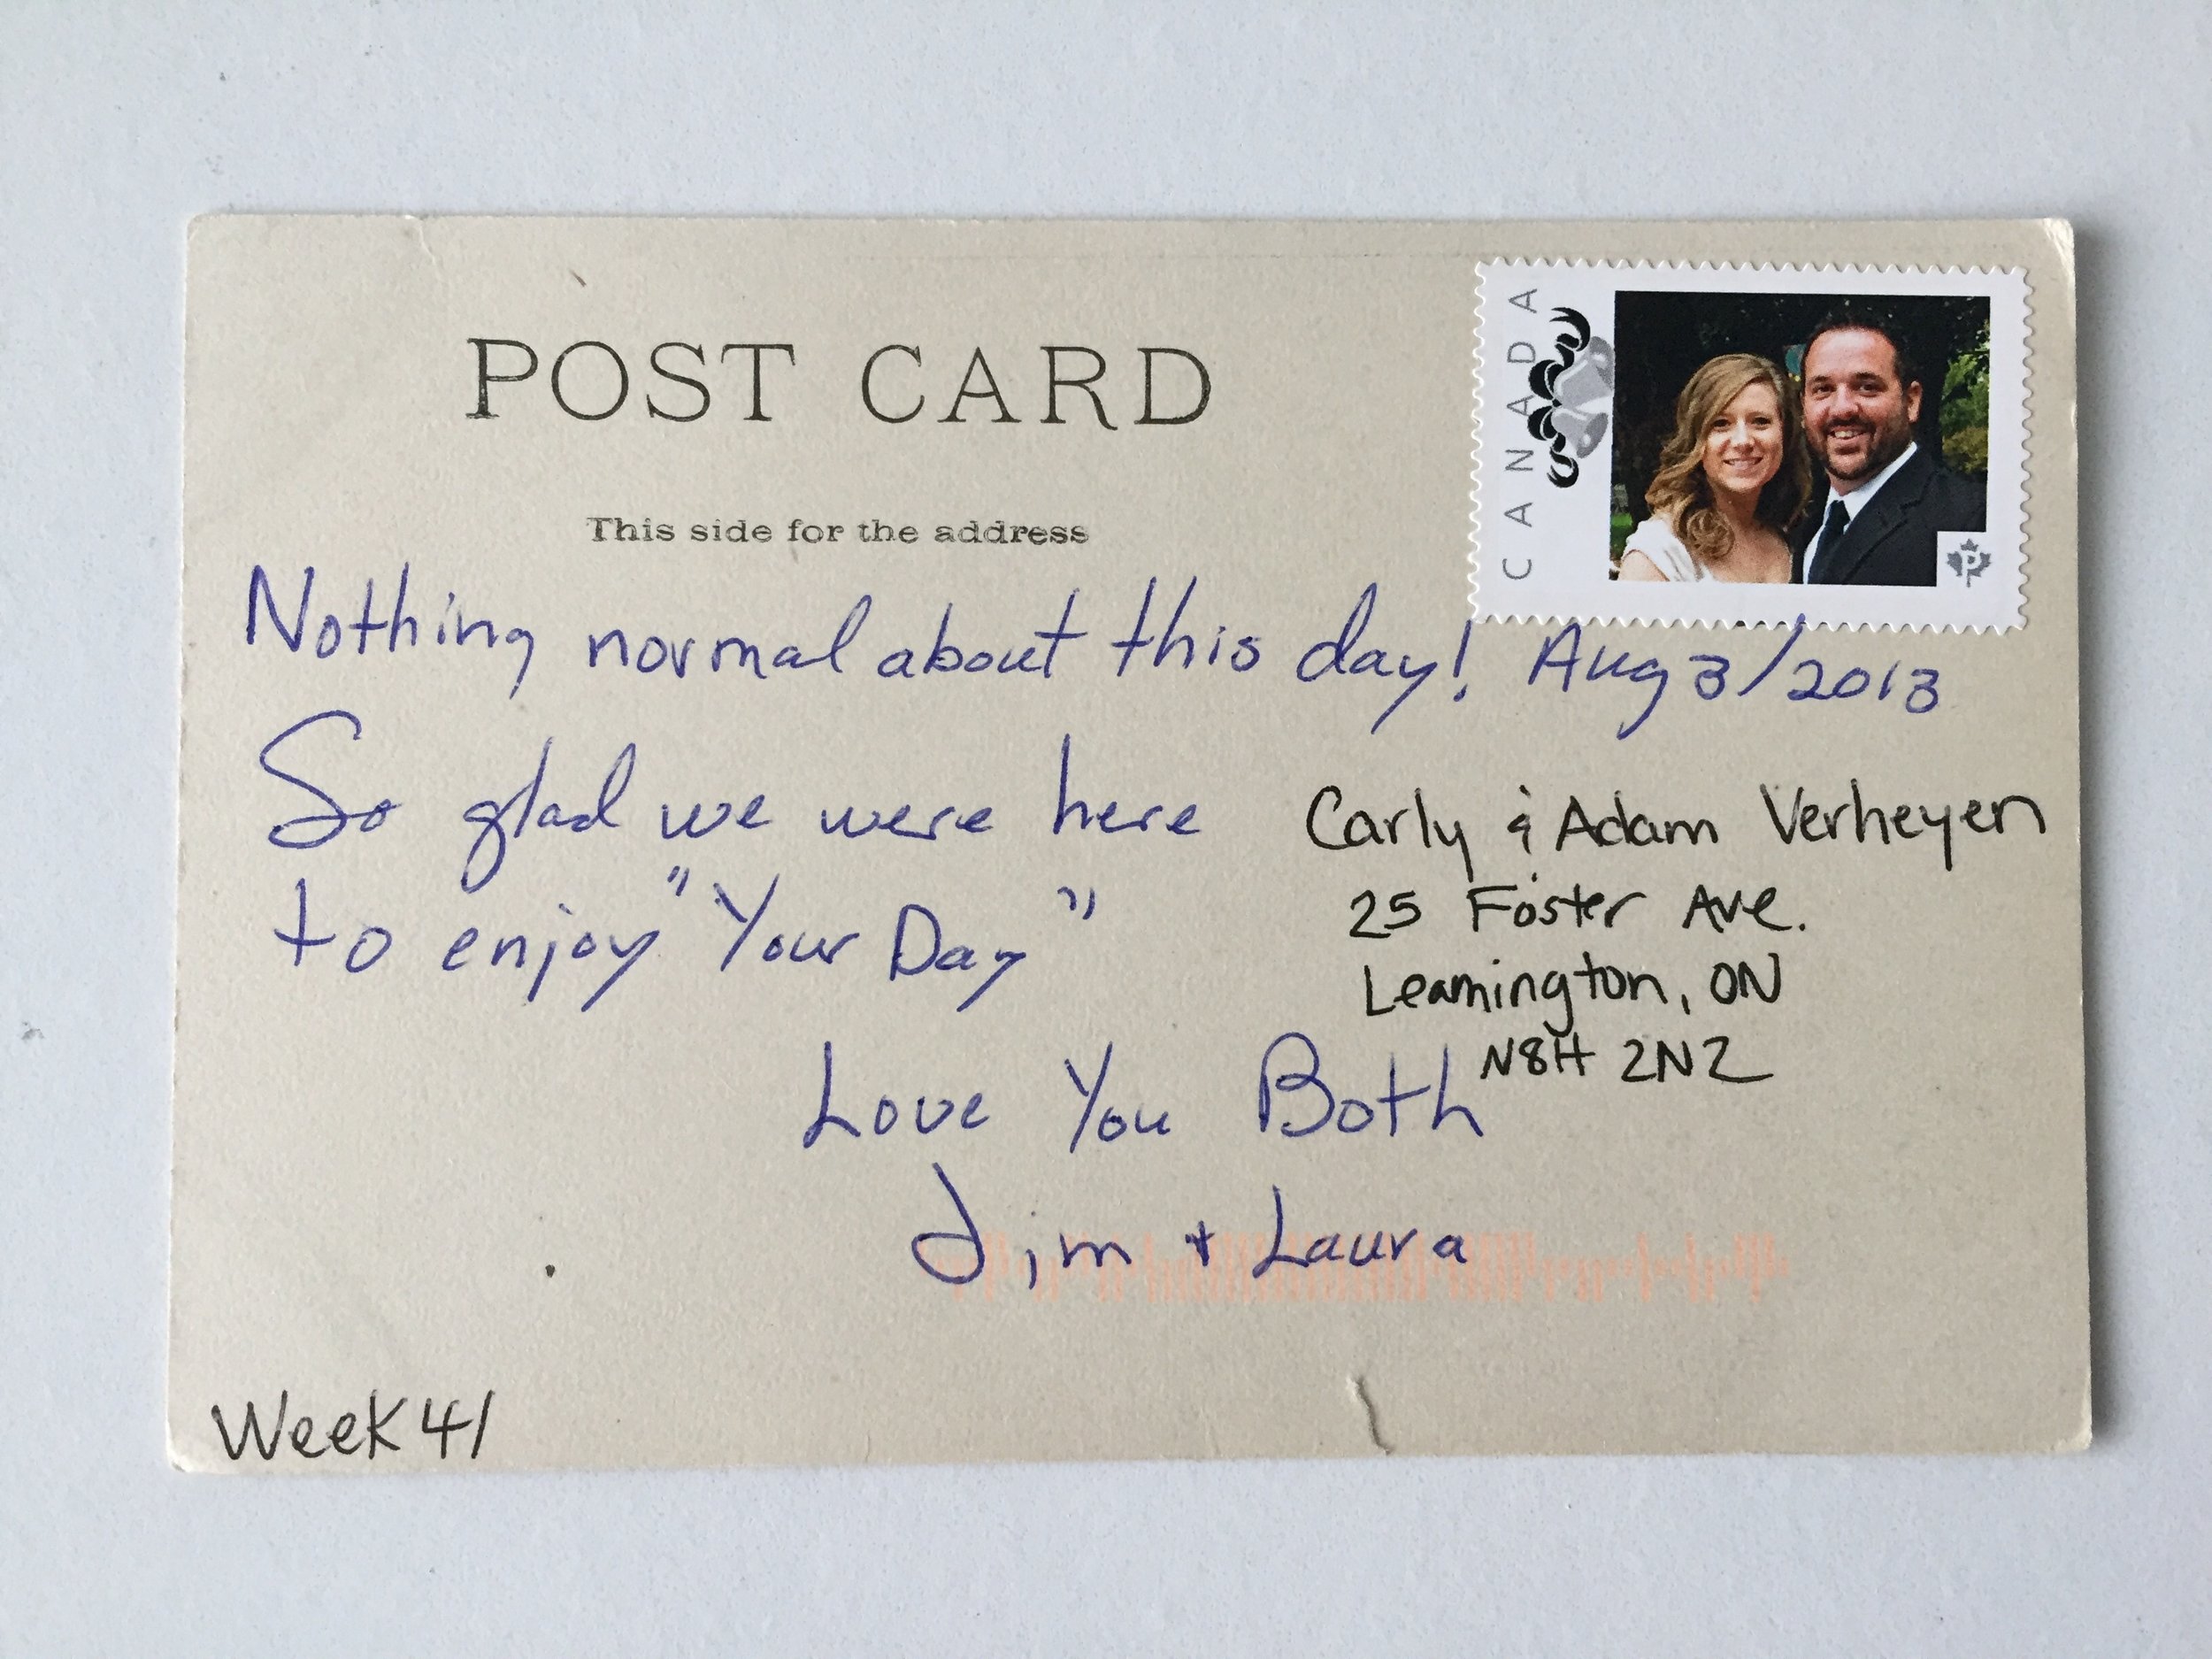 POST CARD
This side for the address
CANADA
P
Nothing normal about this day! Aug 3/2013
So glad we were here
to enjoy "Your Day"
Love You Both
Jim + Laura
Carly & Adam Verheyen
25 Foster Ave.
Leamington, ON
N8H 2N2
Week 41